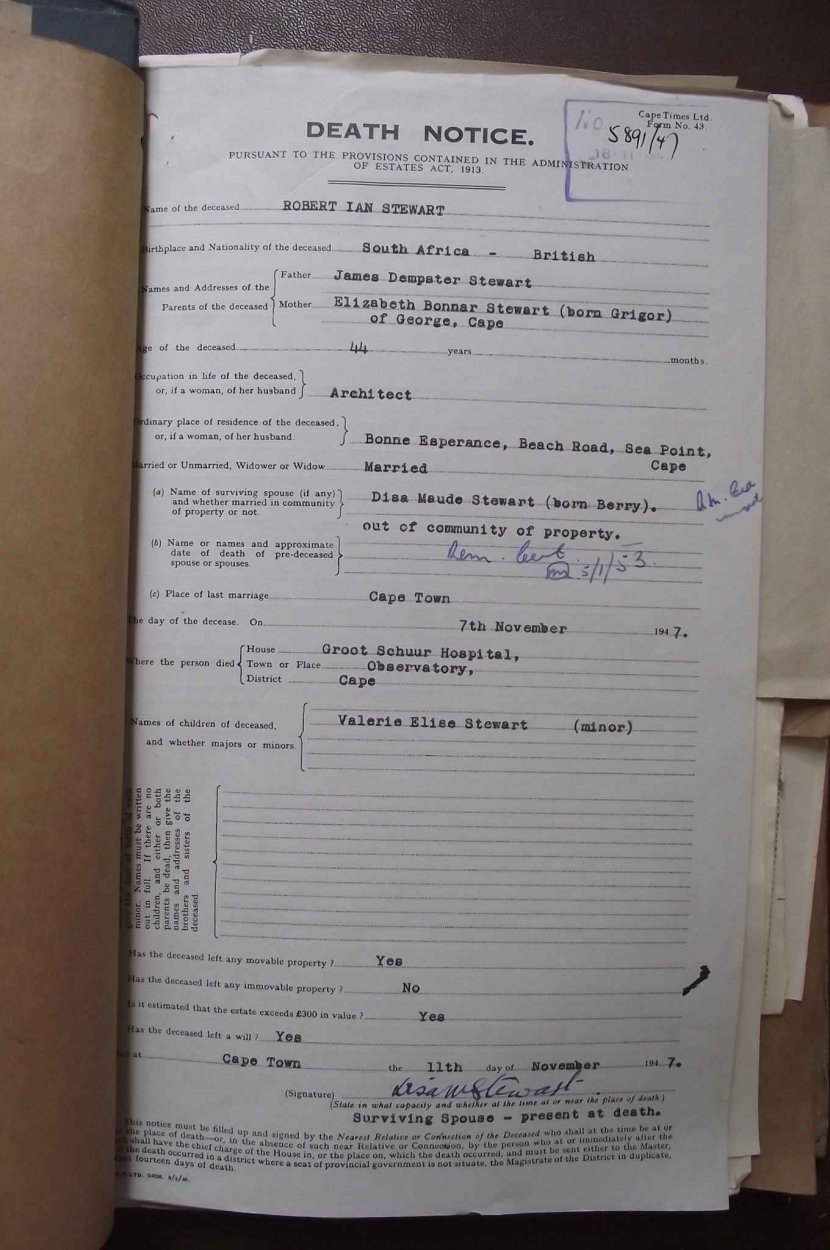 Cape Times Ltd.
Form No. 43.
No 5891/47
DEATH NOTICE.
PURSUANT TO THE PROVISIONS CONTAINED IN THE ADMINISTRATION
OF ESTATES ACT, 1913.
Name of the deceased ROBERT IAN STEWART
Birthplace and Nationality of the deceased South Africa - British
Names and Addresses of the Parents of the deceased
Father James Dempster Stewart
Mother Elizabeth Bonnar Stewart (born Grigor)
of George, Cape
Age of the deceased 44 years months.
Occupation in life of the deceased,
or, if a woman, of her husband Architect
Ordinary place of residence of the deceased,
or, if a woman, of her husband Bonne Esperance, Beach Road, Sea Point,
Married or Unmarried, Widower or Widow Married Cape
(a) Name of surviving spouse (if any)
and whether married in community
of property or not.
Disa Maude Stewart (born Berry).
out of community of property.
(b) Name or names and approximate
date of death of pre-deceased
spouse or spouses.
Rem. Cert.
5/1/53.
(c) Place of last marriage Cape Town
The day of the decease. On 7th November 1947.
Where the person died
House Groot Schuur Hospital,
Town or Place Observatory,
District Cape
Names of children of deceased, Valerie Elise Stewart (minor)
and whether majors or minors
minor. Names must be written
out in full. If there are no
children, and either or both
parents be dead, then give the
names and addresses of the
brothers and sisters of the
deceased.
Has the deceased left any movable property ? Yes
Has the deceased left any immovable property ? No
Is it estimated that the estate exceeds £300 in value ? Yes
Has the deceased left a will ? Yes
at Cape Town the 11th day of November 1947.
(Signature) Disa M Stewart
(State in what capacity and whether at the time at or near the place of death.)
Surviving Spouse - present at death.
This notice must be filled up and signed by the Nearest Relative or Connection of the Deceased who shall at the time be at or
the place of death—or, in the absence of such near Relative or Connection, by the person who at or immediately after the
shall have the chief charge of the House in, or the place on, which the death occurred, and must be sent either to the Master,
the death occurred in a district where a seat of provincial government is not situate, the Magistrate of the District in duplicate,
fourteen days of death.